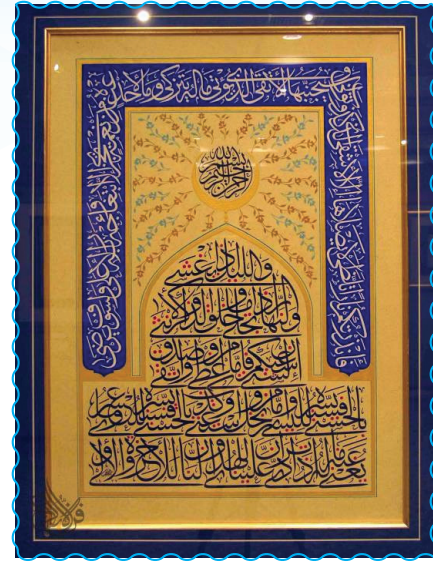 بسم الله الرحمن الرحيم
والليل إذا يغشى
والنهار إذا تجلى وما خلق الذكر والأنثى
إن سعيكم لشتى فأما من أعطى واتقى وصدق
بالحسنى فسنيسره لليسرى وأما من بخل واستغنى وكذب بالحسنى فسنيسره للعسرى وما
يغني عنه ماله إذا تردى إن علينا للهدى وإن لنا للآخرة والأولى
فأنذرتكم نارا تلظى لا يصلاها إلا الأشقى الذي كذب وتولى
وسيجنبها الأتقى الذي يؤتي ماله يتزكى وما لأحد
عنده من نعمة تجزى إلا ابتغاء وجه ربه الأعلى ولسوف يرضى